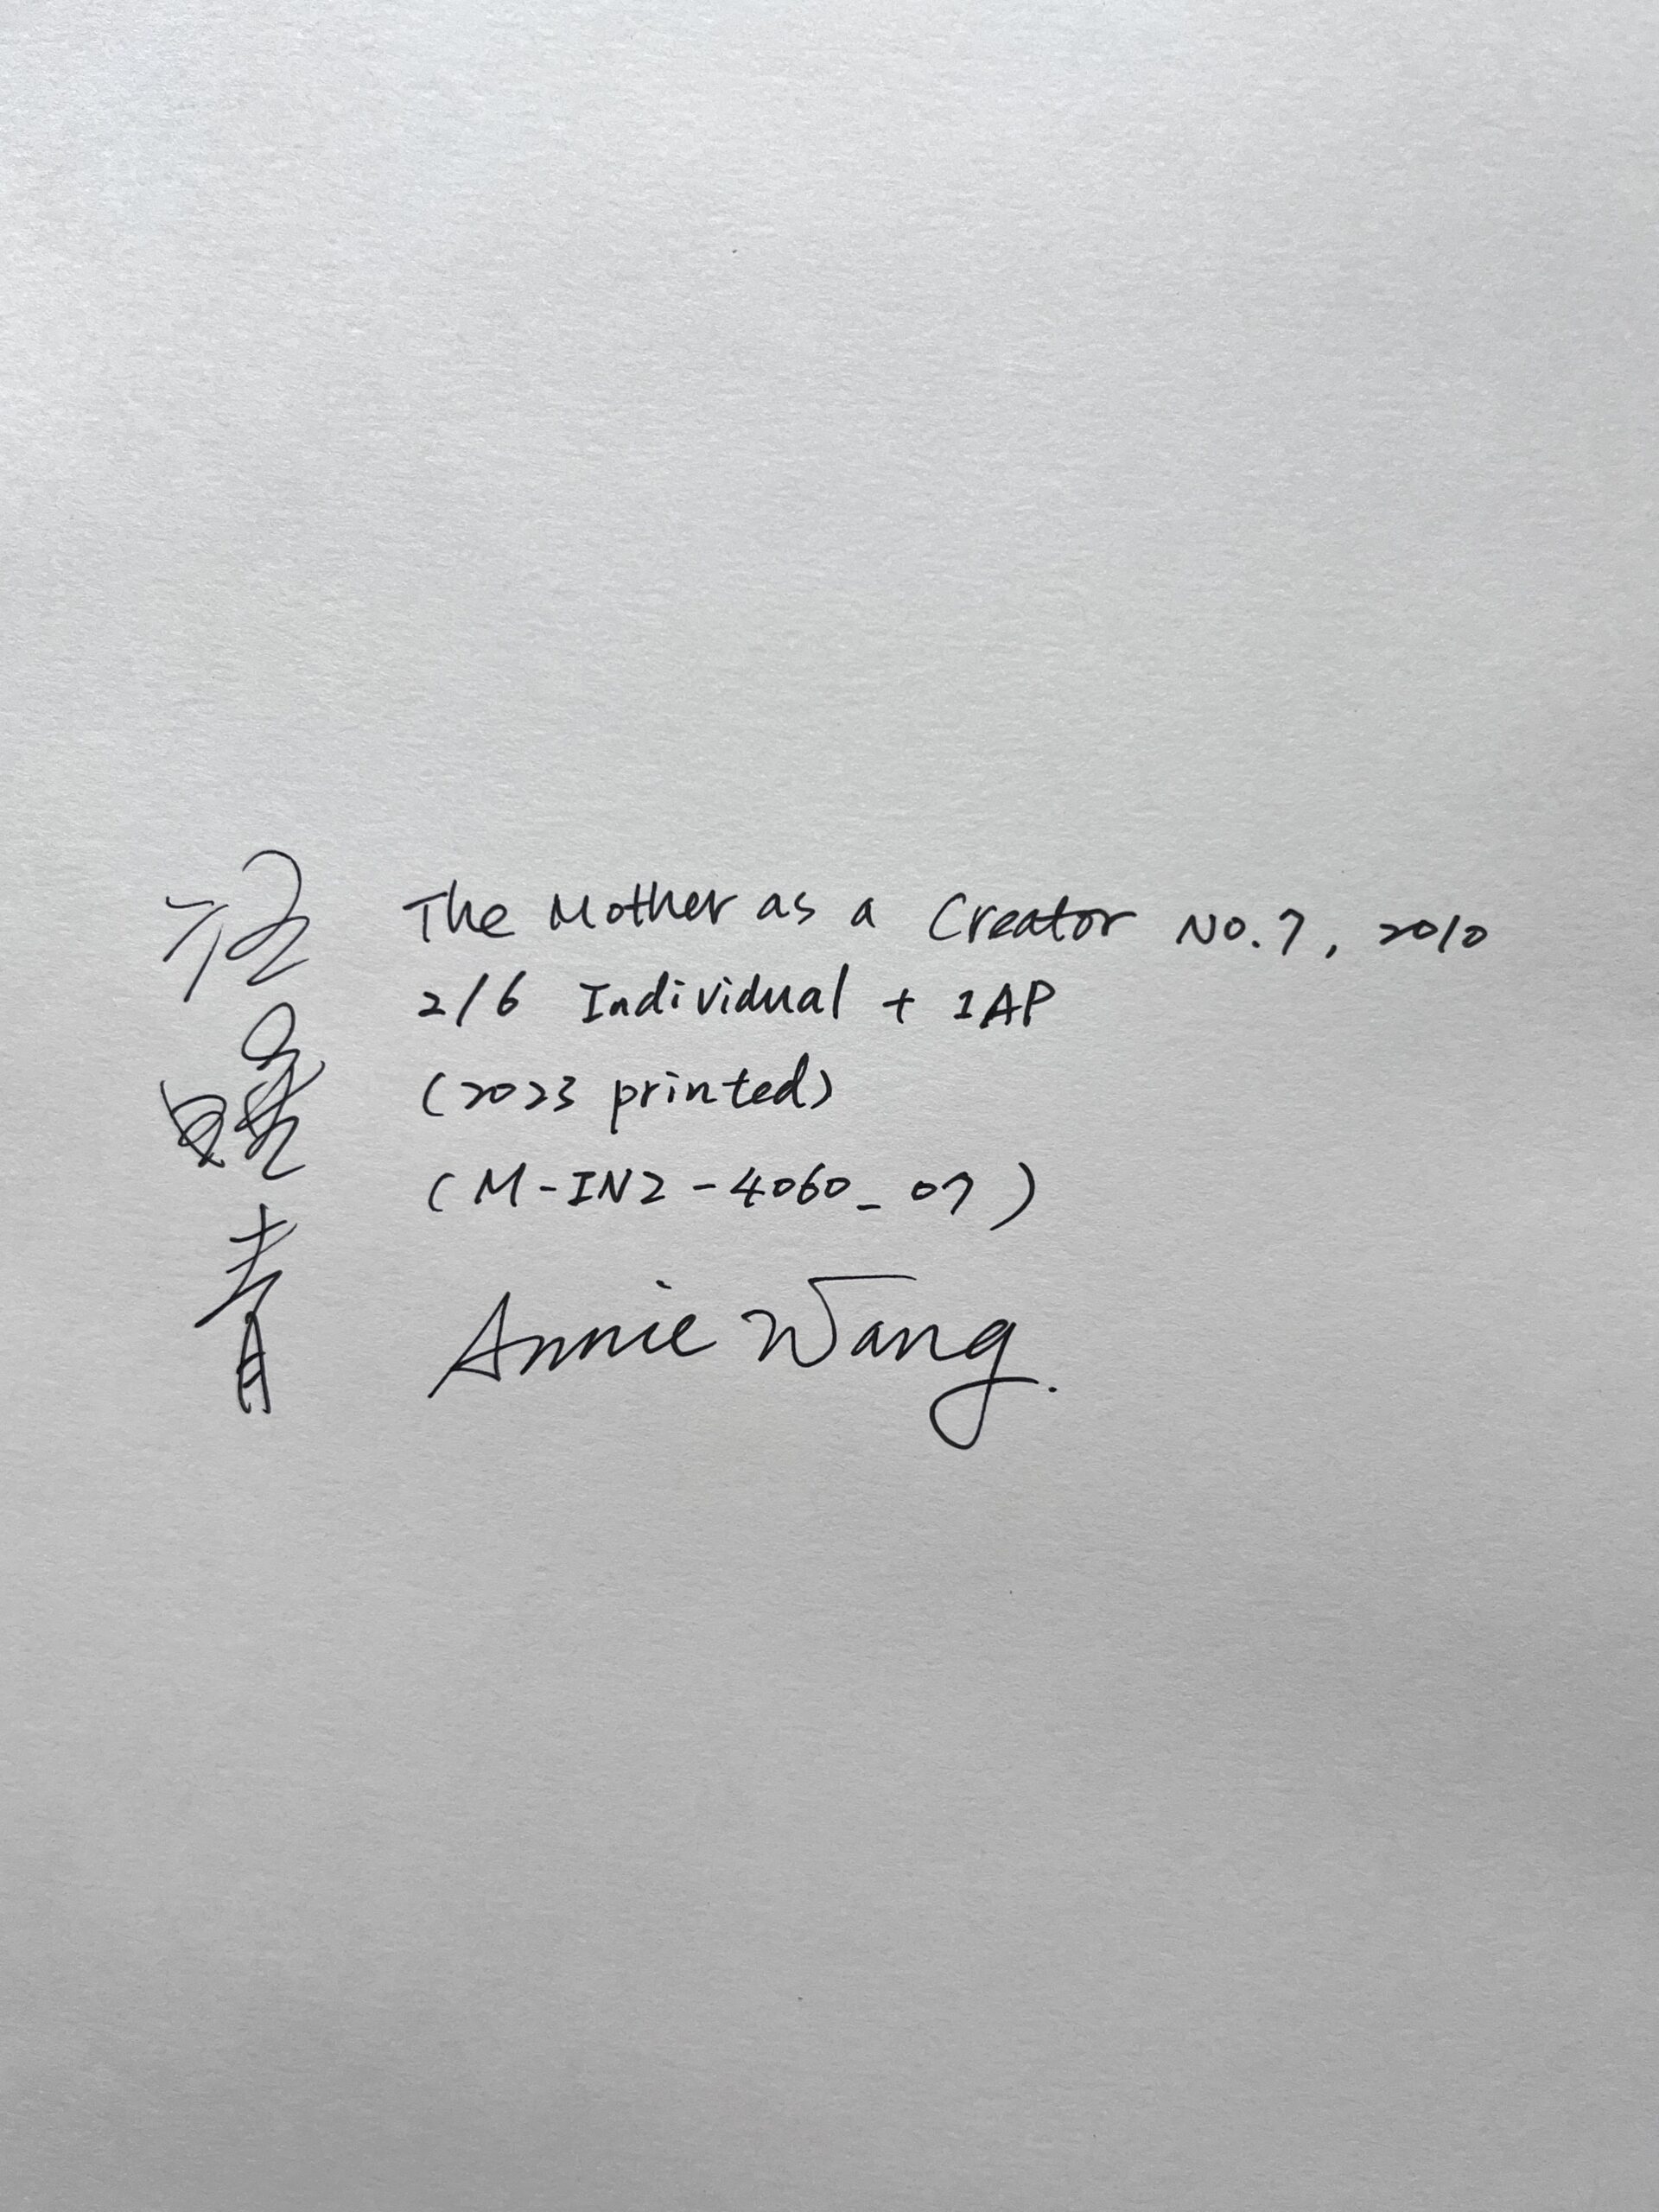 汪曉青
The Mother as a Creator No.7, 2010
2/6 Individual + 1AP
(2023 printed)
(M-IN2-4060_07)
Annie Wang.